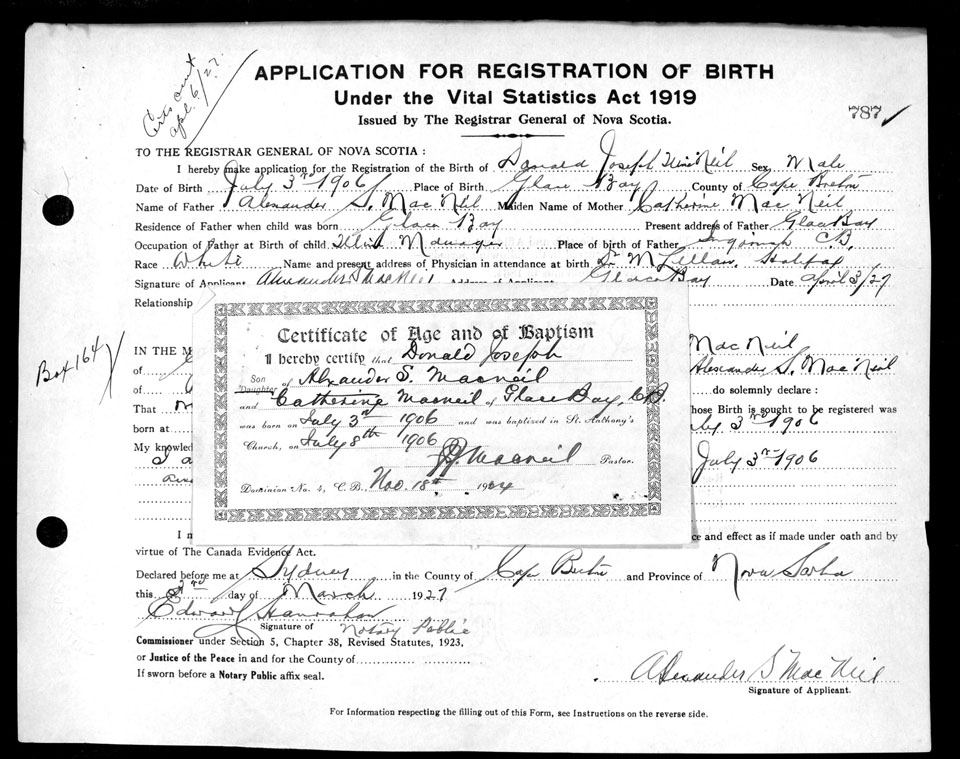 Certs out
apl. 6/27
APPLICATION FOR REGISTRATION OF BIRTH
Under the Vital Statistics Act 1919
Issued by The Registrar General of Nova Scotia.
787
TO THE REGISTRAR GENERAL OF NOVA SCOTIA :
I hereby make application for the Registration of the Birth of Donald Joseph MacNeil Sex Male
Date of Birth July 3rd 1906 Place of Birth Glace Bay County of Cape Breton
Name of Father Alexander S. MacNeil Maiden Name of Mother Catherine MacNeil
Residence of Father when child was born Glace Bay Present address of Father Glace Bay
Occupation of Father at Birth of child Mine Manager Place of birth of Father Ingonish C.B.
Race White Name and present address of Physician in attendance at birth Dr McLellan, Halifax
Signature of Applicant Alexander S MacNeil Address of Applicant Glace Bay Date April 3/27
Relationship
Box 164
IN THE M MacNeil
of Alexander S. MacNeil
of do solemnly declare :
That hose Birth is sought to be registered was
born at July 3rd 1906
My knowled July 3rd 1906
Certificate of Age and of Baptism
I hereby certify that Donald Joseph
Son
Daughter of Alxander S. Macneil
and Catherine Macneil of Glace Bay, C.B.
was born on July 3rd 1906 and was baptized in St. Anthony's
Church, on July 8th 1906
Macneil Pastor.
Dominion No. 4, C. B. Nov. 18th 1924
I m ce and effect as if made under oath and by
virtue of The Canada Evidence Act.
Declared before me at Sydney in the County of Cape Breton and Province of Nova Scotia
this day of March 1927
Edward Hanrahan
Signature of Notary Public
Commissioner under Section 5, Chapter 38, Revised Statutes, 1923,
or Justice of the Peace in and for the County of
If sworn before a Notary Public affix seal.
Alexander S MacNeil
Signature of Applicant.
For Information respecting the filling out of this Form, see Instructions on the reverse side.